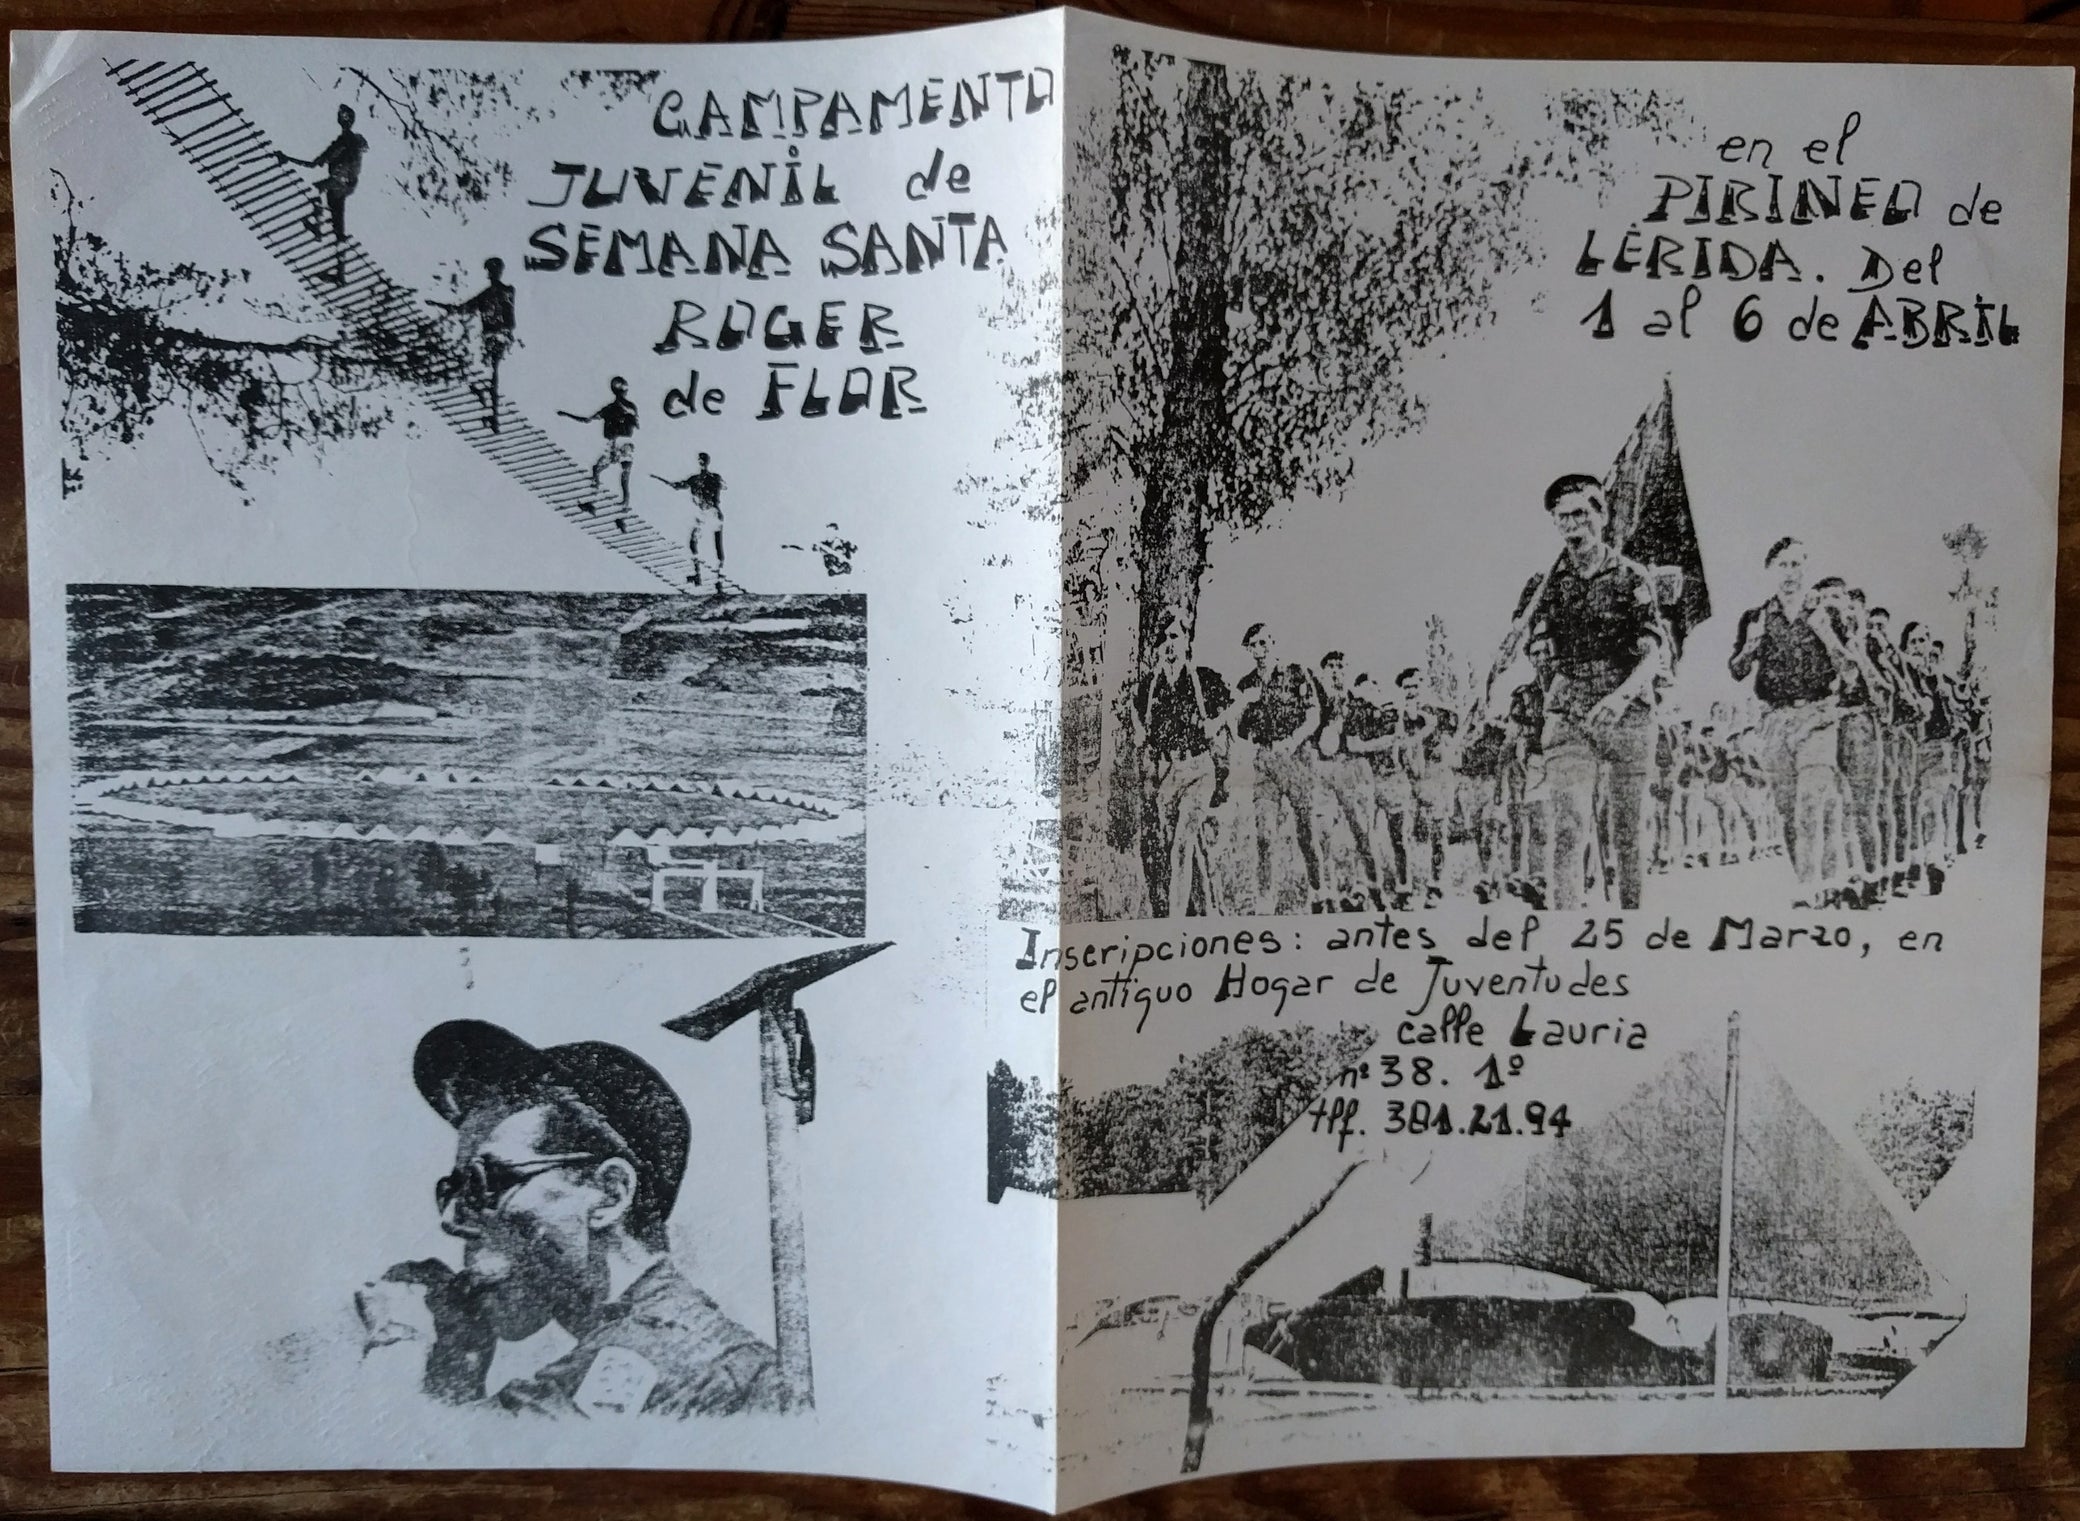 CAMPAMENTO
JUVENIL de
SEMANA SANTA
ROGER
de FLOR
en el
PIRINEO de
LÉRIDA. Del
1 al 6 de ABRIL
Inscripciones: antes del 25 de Marzo, en
el antiguo Hogar de Juventudes
calle Lauria
nº 38. 1º
tlf. 301.21.94